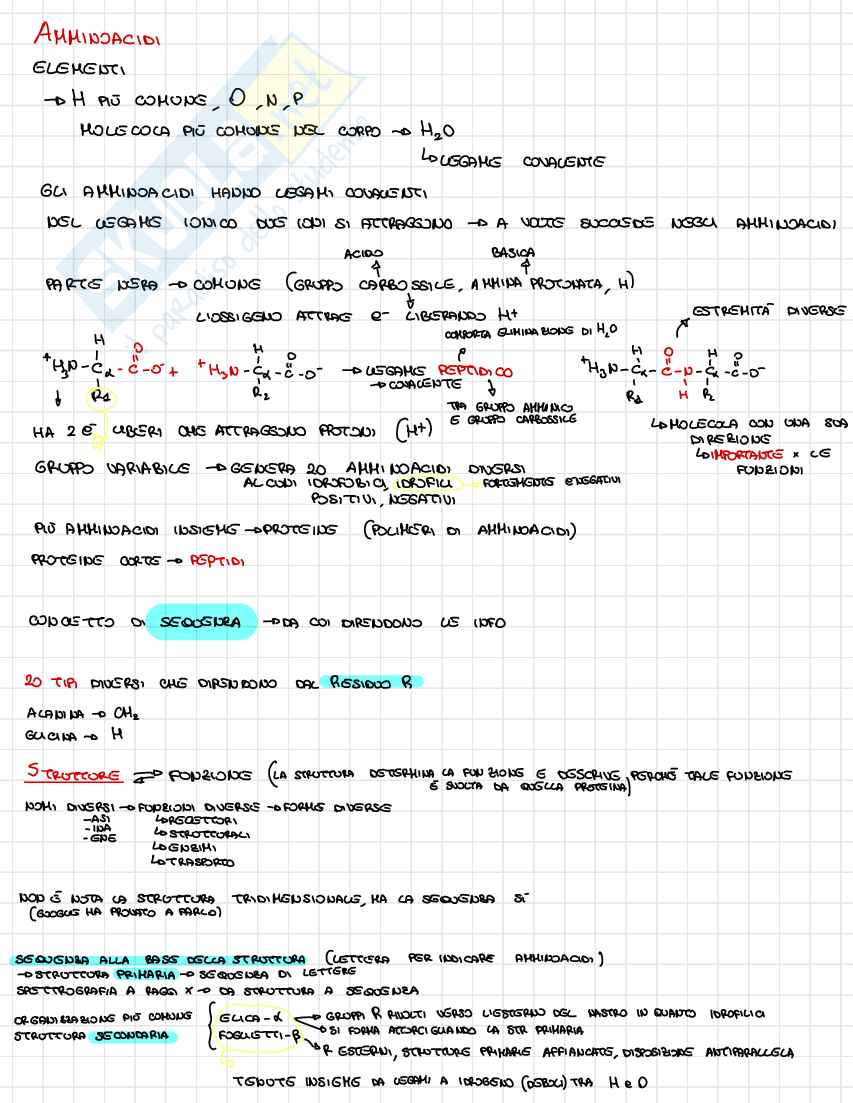 AMMINOACIDI
ELEMENTI
→ H PIÙ COMUNE, O, N, P
MOLECOLA PIÙ COMUNE NEL CORPO → H₂O
↳ LEGAME COVALENTE
GLI AMMINOACIDI HANNO LEGAMI COVALENTI
NEL LEGAME IONICO DUE IONI SI ATTRAGGONO → A VOLTE SUCCEDE NEGLI AMMINOACIDI
ACIDO BASICA
PARTE NERA → COMUNE (GRUPPO CARBOSSILE, AMMINA PROTONATA, H)
L'OSSIGENO ATTRAE e⁻ LIBERANDO H+
ESTREMITÀ DIVERSE
COMPORTA ELIMINAZIONE DI H₂O
H O H O H O H O
⁺H₃N - Cα - C - O⁻ + ⁺H₃N - Cα - C - O⁻ → LEGAME PEPTIDICO ⁺H₃N - Cα - C - N - Cα - C - O⁻
→ COVALENTE
R₁ R₂ R₁ H R₂
TRA GRUPPO AMMINICO
E GRUPPO CARBOSSILE
HA 2 e⁻ LIBERI CHE ATTRAGGONO PROTONI (H+)
↳ MOLECOLA CON UNA SUA
DIREZIONE
↳ IMPORTANTE x LE
FUNZIONI
GRUPPO VARIABILE → GENERA 20 AMMINOACIDI DIVERSI
ALCUNI IDROFOBICI, IDROFILI → FORTEMENTE ENEGATIVI
POSITIVI, NEGATIVI
PIÙ AMMINOACIDI INSIEME → PROTEINE (POLIMERI DI AMMINOACIDI)
PROTEINE CORTE → PEPTIDI
CONCETTO DI SEQUENZA → DA CUI DIPENDONO LE INFO
20 TIPI DIVERSI CHE DIPENDONO DAL RESIDUO R
ALANINA → CH₂
GLICINA → H
STRUTTURE ⇌ FUNZIONE (LA STRUTTURA DETERMINA LA FUNZIONE E DESCRIVE PERCHÉ TALE FUNZIONE
È SVOLTA DA QUELLA PROTEINA)
NOMI DIVERSI → FUNZIONI DIVERSE → FORME DIVERSE
-ASI ↳ RECETTORI
-INA ↳ STRUTTURALI
-ENE ↳ ENZIMI
↳ TRASPORTO
NON È NOTA LA STRUTTURA TRIDIMENSIONALE, MA LA SEQUENZA SÌ
(GOOGLE HA PROVATO A FARLO)
SEQUENZA ALLA BASE DELLA STRUTTURA (LETTERA PER INDICARE AMMINOACIDI)
→ STRUTTURA PRIMARIA → SEQUENZA DI LETTERE
SPETTROGRAFIA A RAGGI X → DA STRUTTURA A SEQUENZA
ORGANIZZAZIONE PIÙ COMUNE { ELICA-α → GRUPPI R RIVOLTI VERSO L'ESTERNO DEL NASTRO IN QUANTO IDROFILICI
→ SI FORMA ATTORCIGLIANDO LA STR PRIMARIA
STRUTTURA SECONDARIA FOGLIETTI-β
→ R ESTERNI, STRUTTURE PRIMARIE AFFIANCATE, DISPOSIZIONE ANTIPARALLELA
TENUTE INSIEME DA LEGAMI A IDROGENO (DEBOLI) TRA H e O
SKUOLA.net
il paradiso dello studente